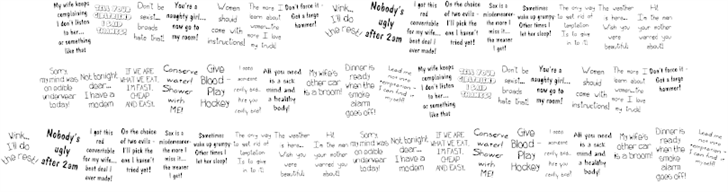 My wife keeps
complaining
I don't listen
to her...
or something
like that
Don't be
sexist...
broads
hate that!
You're a
naughty girl...
now go to
my room!
Women
should
come with
instructions!
The more I
learn about
women...the
more I love
my truck!
Don't force it -
Get a large
hammer!
Wink...
I'll do
the rest!
Nobody's
ugly
after 2am
I got this
red
convertible
for my wife...
best deal I
ever made!
On the choice
of two evils -
I'll pick the
one I haven't
tried yet!
Sex is a
misdemeanor-
the more I
miss it...
the meaner
I get!
Sometimes
wake up grumpy
Other times I
let her sleep!
The only way
to get rid of
temptation
Is to give
in to it
The weather
is here...
Wish you
were
beautiful
Hi...
I'm the man
your mother
warned you
about!
Sorry,
my mind was
on edible
underwear
today!
Not tonight
dear...
I have a
modem
IF WE ARE
WHAT WE EAT,
I'M FAST,
CHEAP
AND EASY.
Conserve
water!
Shower
with
ME!
Give
Blood -
Play
Hockey
All you need
is a sick
mind and a
healthy
body!
My wife's
other car
is a broom!
Dinner is
ready
when the
smoke
alarm
goes off!
Lead me
not into
temptation -
I can find it
myself
My wife keeps
complaining
I don't listen
to her...
or something
like that
Don't be
sexist...
broads
hate that!
You're a
naughty girl...
now go to
my room!
Women
should
come with
instructions!
The more I
learn about
women...the
more I love
my truck!
Don't force it -
Get a large
hammer!
Wink...
I'll do
the rest!
Nobody's
ugly
after 2am
I got this
red
convertible
for my wife...
best deal I
ever made!
On the choice
of two evils -
I'll pick the
one I haven't
tried yet!
Sex is a
misdemeanor-
the more I
miss it...
the meaner
I get!
Sometimes
wake up grumpy
Other times I
let her sleep!
The only way
to get rid of
temptation
Is to give
in to it
The weather
is here...
Wish you
were
beautiful
Hi...
I'm the man
your mother
warned you
about!
Sorry,
my mind was
on edible
underwear
today!
Not tonight
dear...
I have a
modem
IF WE ARE
WHAT WE EAT,
I'M FAST,
CHEAP
AND EASY.
Conserve
water!
Shower
with
ME!
Give
Blood -
Play
Hockey
All you need
is a sick
mind and a
healthy
body!
My wife's
other car
is a broom!
Dinner is
ready
when the
smoke
alarm
goes off!
Lead me
not into
temptation -
I can find it
myself